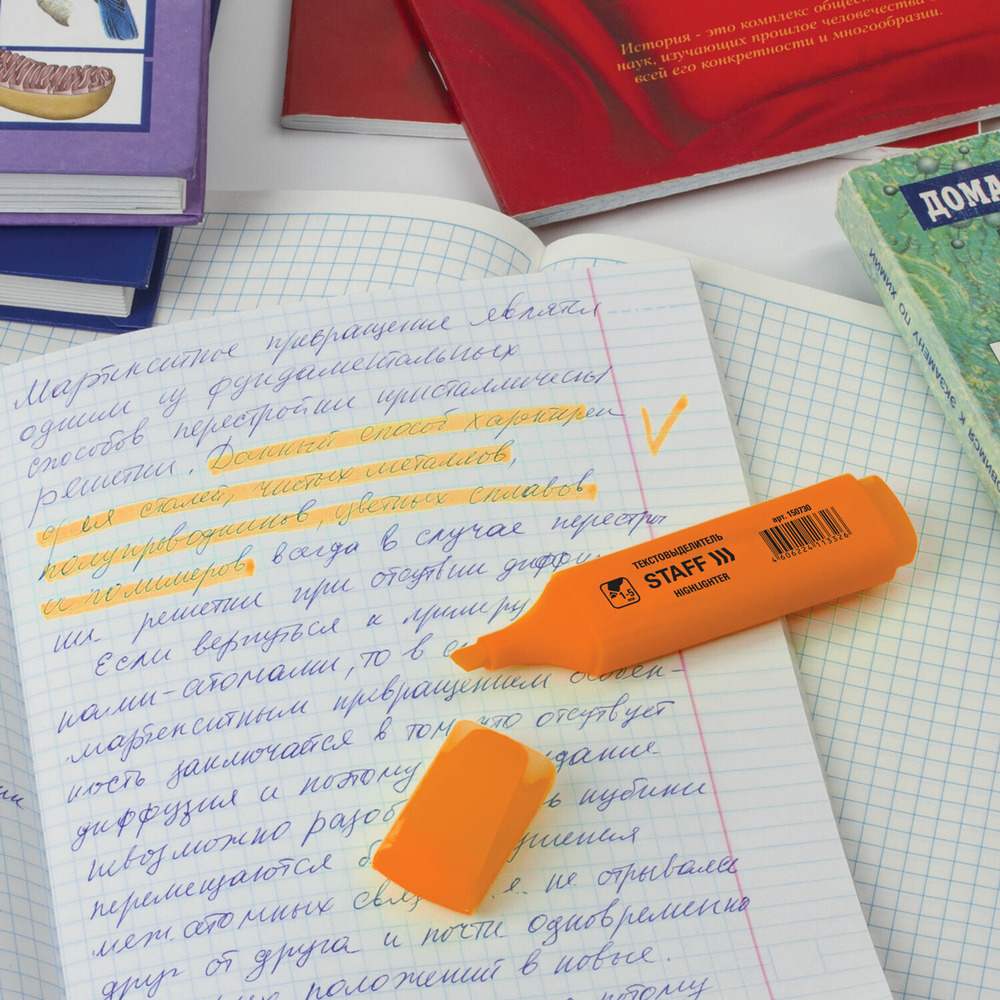 История - это комплекс общест
наук, изучающих прошлое человечества
всей его конкретности и многообразии.
ДОМА
К ЭКЗАМЕНУ ПО ХИМИИ
Мартенситное превращение являтся
одним из фундаментальных
способов перестройки кристаллическы
решетки. Данный способ характерен
для сталей, чистых металлов,
полупроводников, цветных сплавов
и полимеров всегда в случае перестро
ии решетки при отсутвии диффу
Если вернуться к примеру
ками-атомами, то в
мартенситным превращением особен-
ность заключается в том, что отсутвует
диффузия и поэтому
невозможно кубики
перемещаются
меж атомных т.е. не отрываясь
друг от друга и почти одновременно
положений в новые.
поэтому
арт. 150730
ТЕКСТОВЫДЕЛИТЕЛЬ
STAFF
HIGHLIGHTER
1-5
мм
4 606224 113326